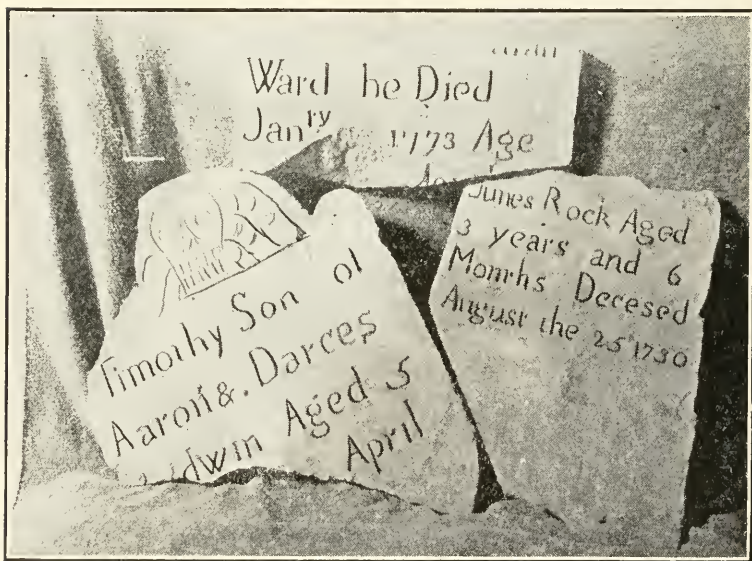 Ward he Died
Janry 1773 Age
Timothy Son of
Aaron &. Darces
dwin Aged 5
April
Junes Rock Aged
3 years and 6
Monrhs Decesed
August the 25 1730